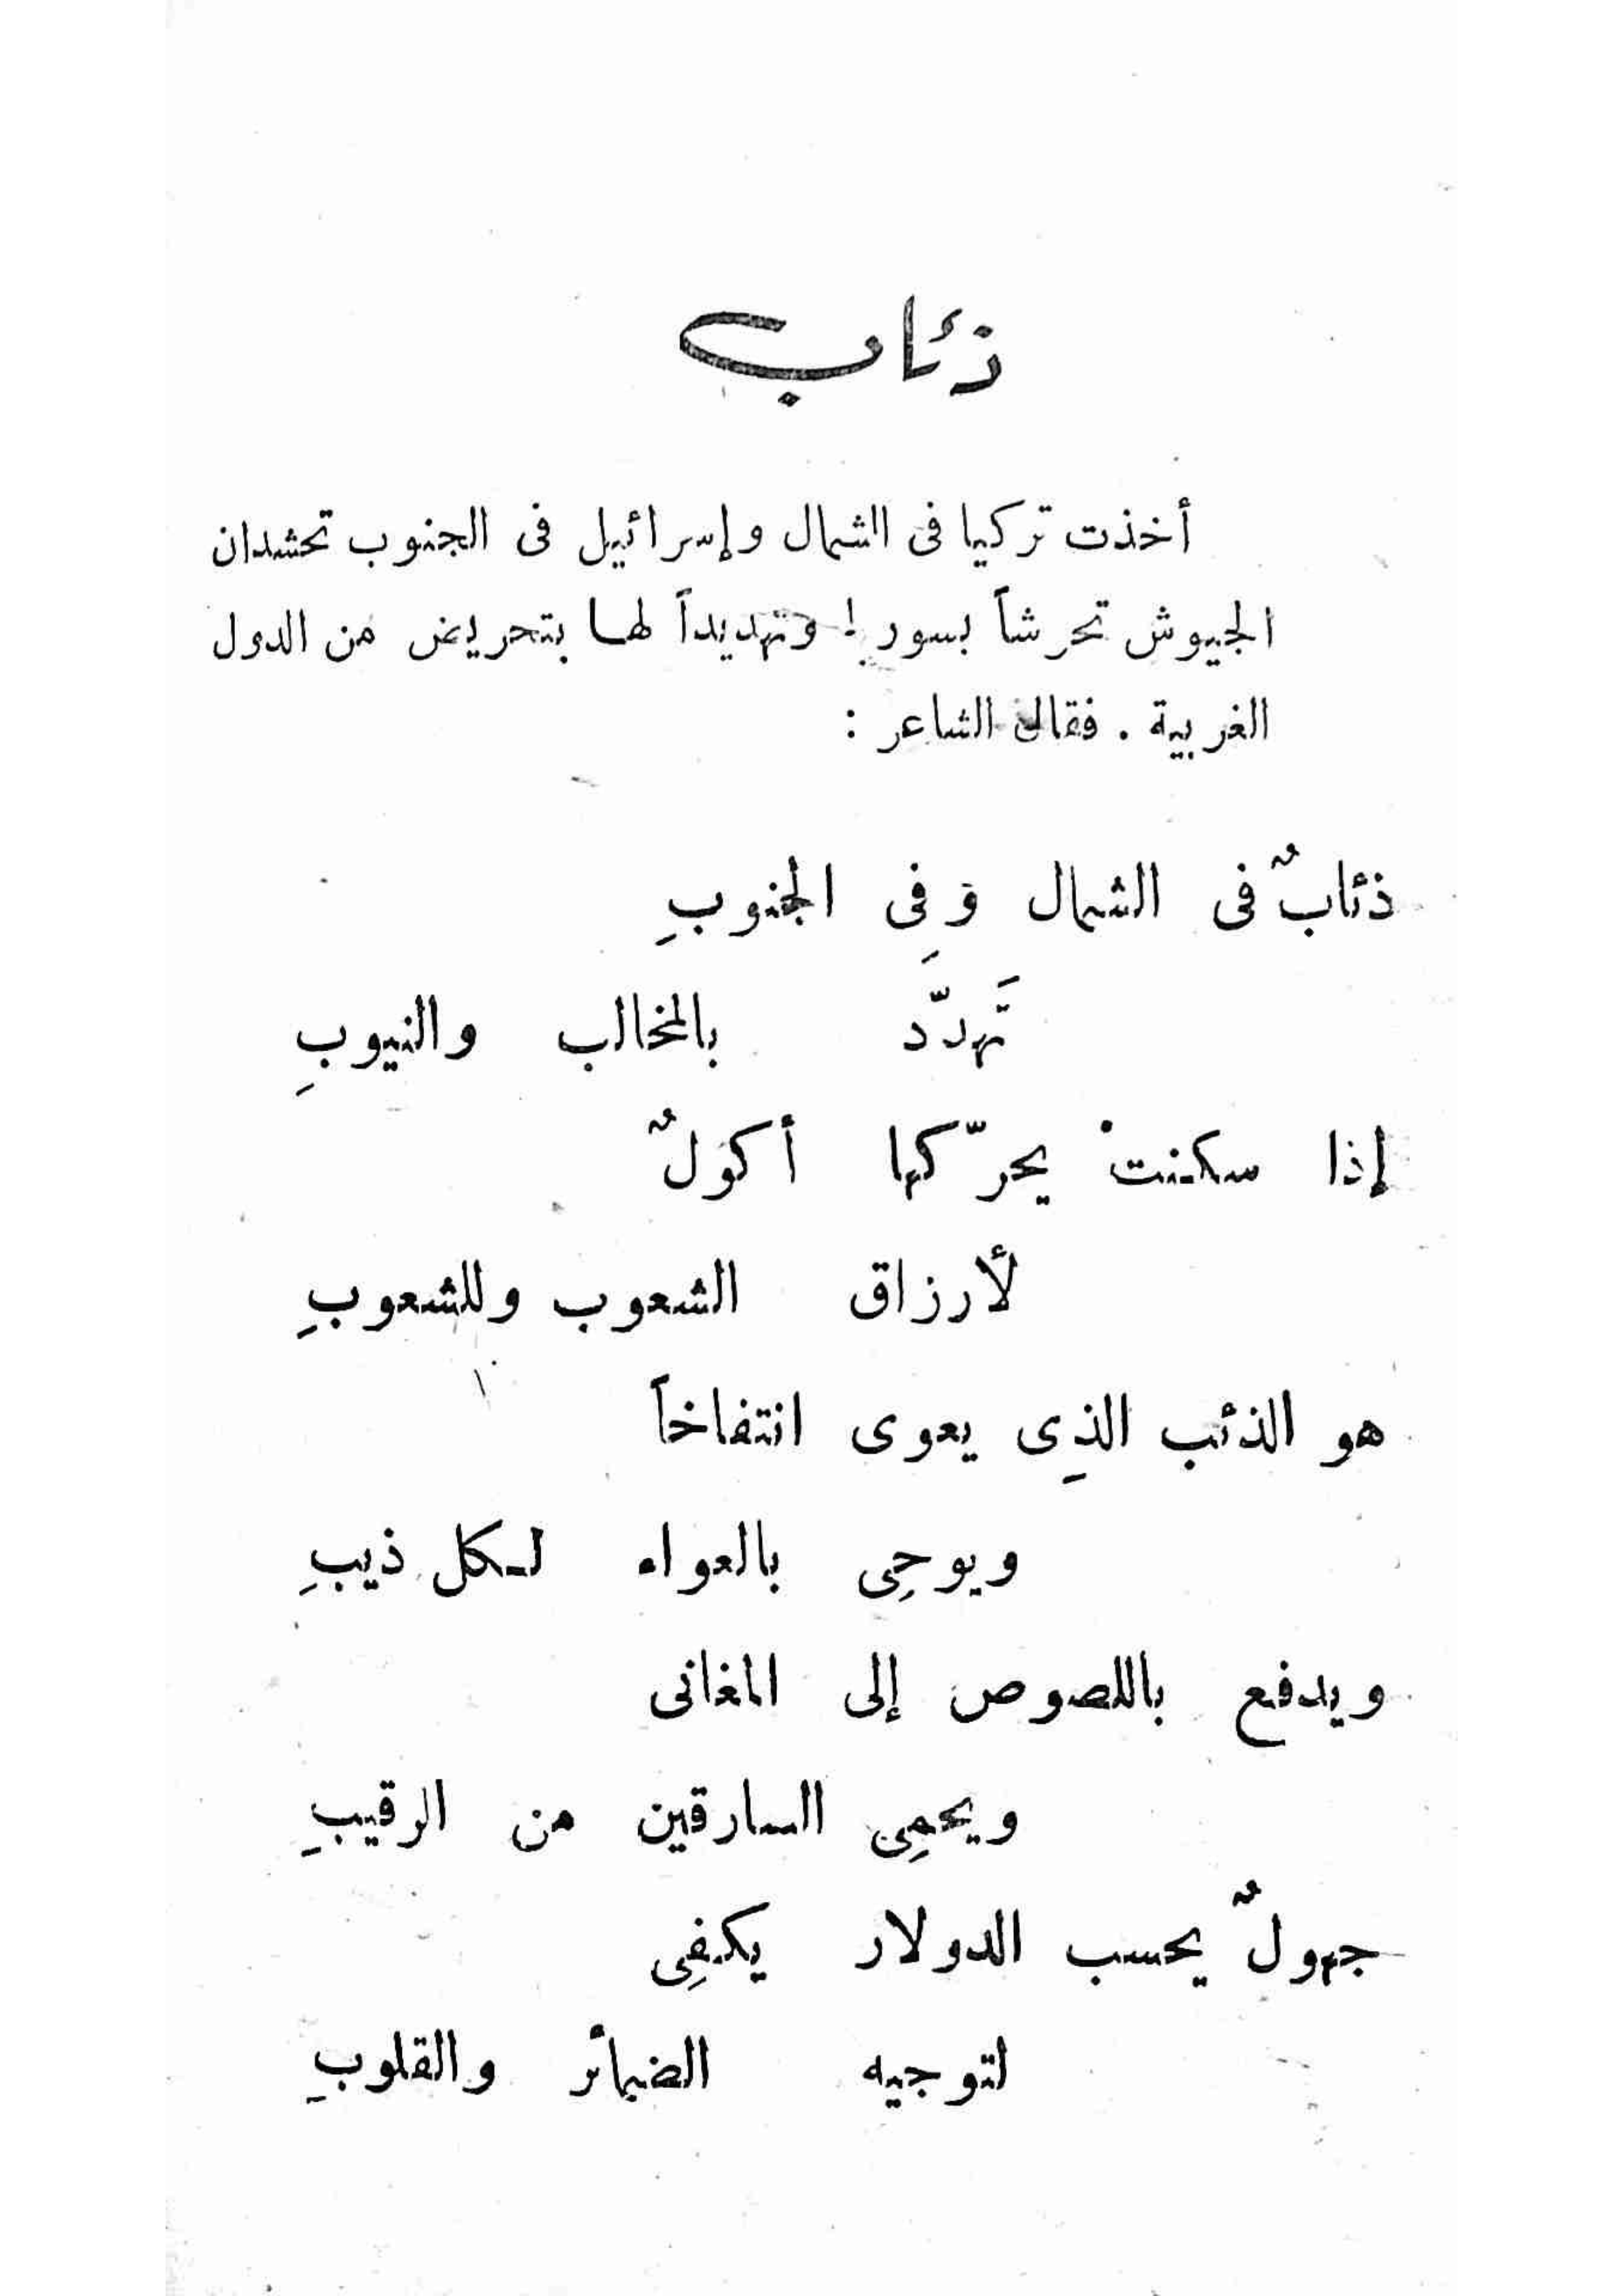 ذئاب
أخذت تركيا فى الشمال وإسرائيل فى الجنوب تحشدان
الجيوش تحرشاً بسوريا وتهديداً لها بتحريض من الدول
الغربية . فقال الشاعر :
ذئابٌ فى الشمال وَفِى الجنوبِ
تَهدّد بالمخالب والنيوبِ
إذا سكنتْ يحرّكها أكولٌ
لأرزاق الشعوب وللشعوبِ
هو الذئب الذِى يعوى انتفاخاً
ويوحِى بالعواء لكل ذيبِ
ويدفع باللصوص إلى المغانى
ويحمِى السارقين من الرقيبِ
جهولٌ يحسب الدولار يكفِى
لتوجيه الضمائر والقلوبِ